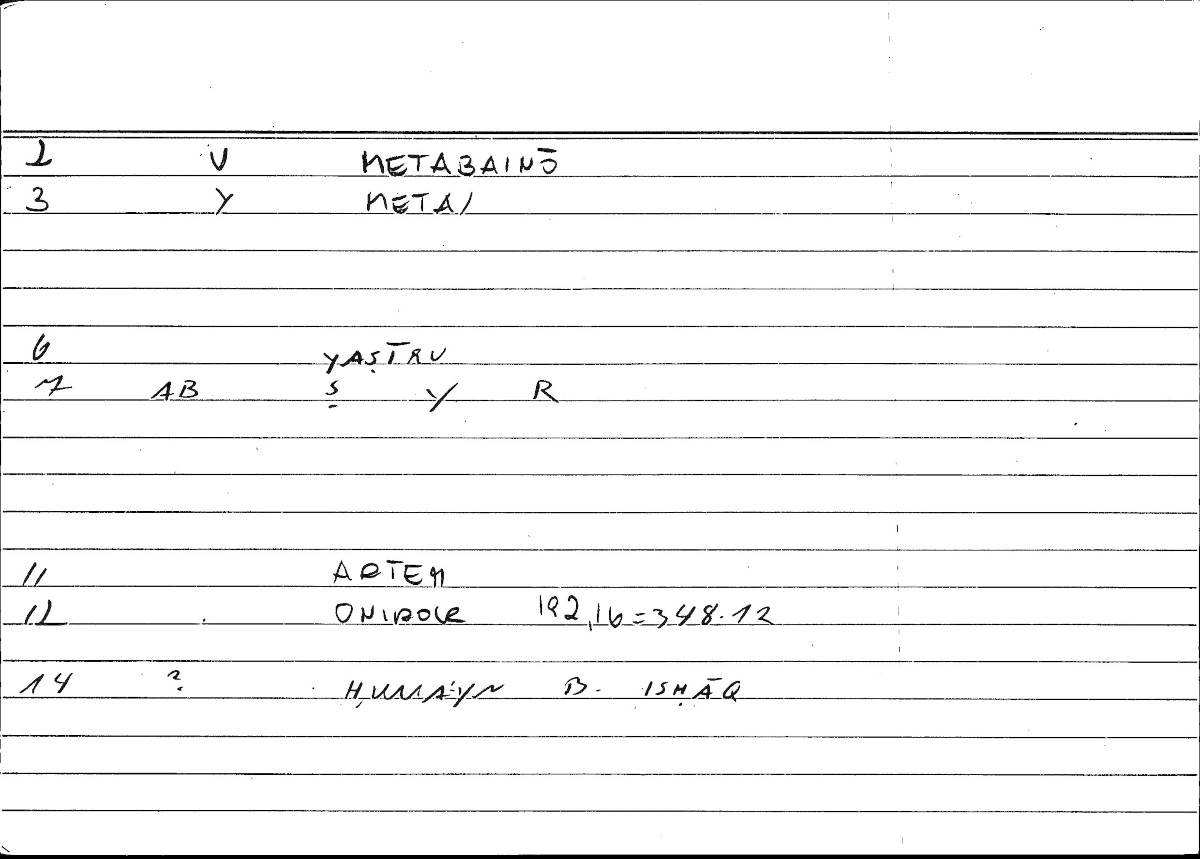 2 V METABAINŌ
3 Y META/
6 YAṢĪRU
7 AB Ṣ Y R
11 ARTEM
12 ONIROCR 192,16=348.12
14 ? ḤUNAYN B. ISḤĀQ